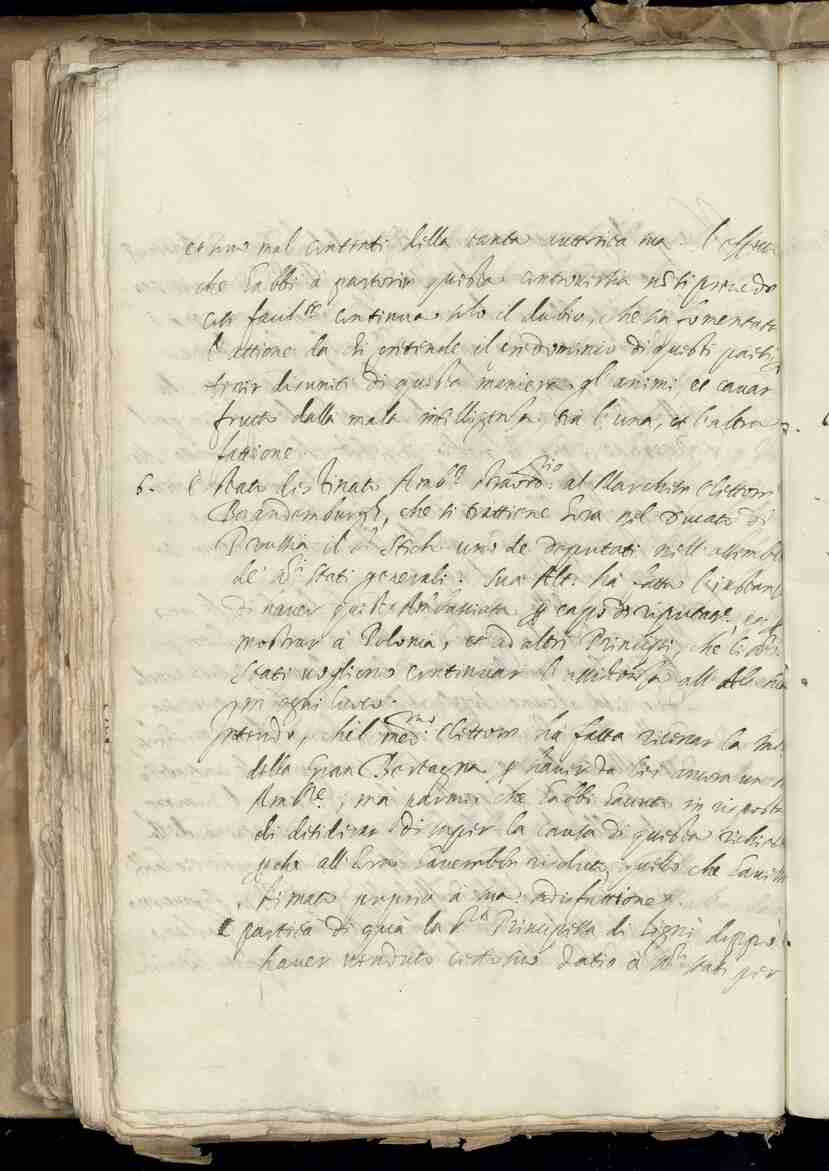 et uno mal contenti della tanta auttorità sua. L'effetto
che habbi à partorir questa controversia nõ si prevede
così facil.te continua solo il dubio, che sia fomentata
l'attione da chi pretende il condominio di questi paesi
tenir disuniti di questa maniera gl'animi, et cavar
frutto dalla mala intelligenza trà l'una, et l'altra
fattione.
6. È stato destinato Amb.r straord.rio al Marchese Elettor
Brandemburgh, che si trattiene hora nel Ducato di
Prussia il S.r Stich uno de deputati nell'assemblea
de' s.ri Stati generali. Sua Alt. hà fatta l'instanza
di haver questa Ambasciata p capo di riputat.e, et p
mostrar à Polonia, et ad altri Principi, che li s.ri
Stati vogliono continuar l'assistenza all'
in ogni loco.
Intendo, che'l med.mo Elettor ha fatta ricercar la M.
della Gran Bertagna p haver da lei ancora un
Amb.re; mà parmi, che habbi havuto in risposta
di desiderar di saper la causa di questa richiesta
pche all'hora haverebbe risoluto quello che haverebbe
stimato proprio à sua sodisfattione.
È partita di quà la S.ra Principessa di Ligni doppo
haver venduto certo suo datio à s.ri stati per